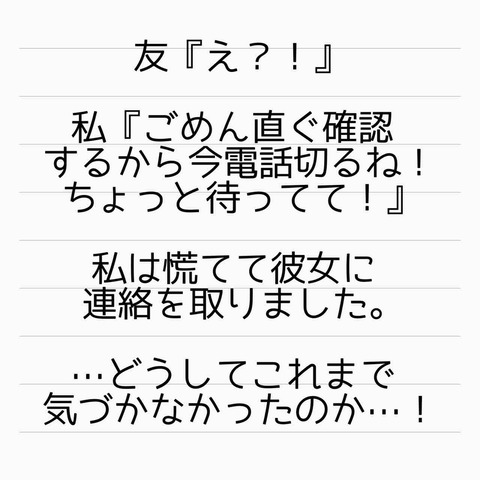 友『え？！』
私『ごめん直ぐ確認
するから今電話切るね！
ちょっと待ってて！』
私は慌てて彼女に
連絡を取りました。
…どうしてこれまで
気づかなかったのか…！